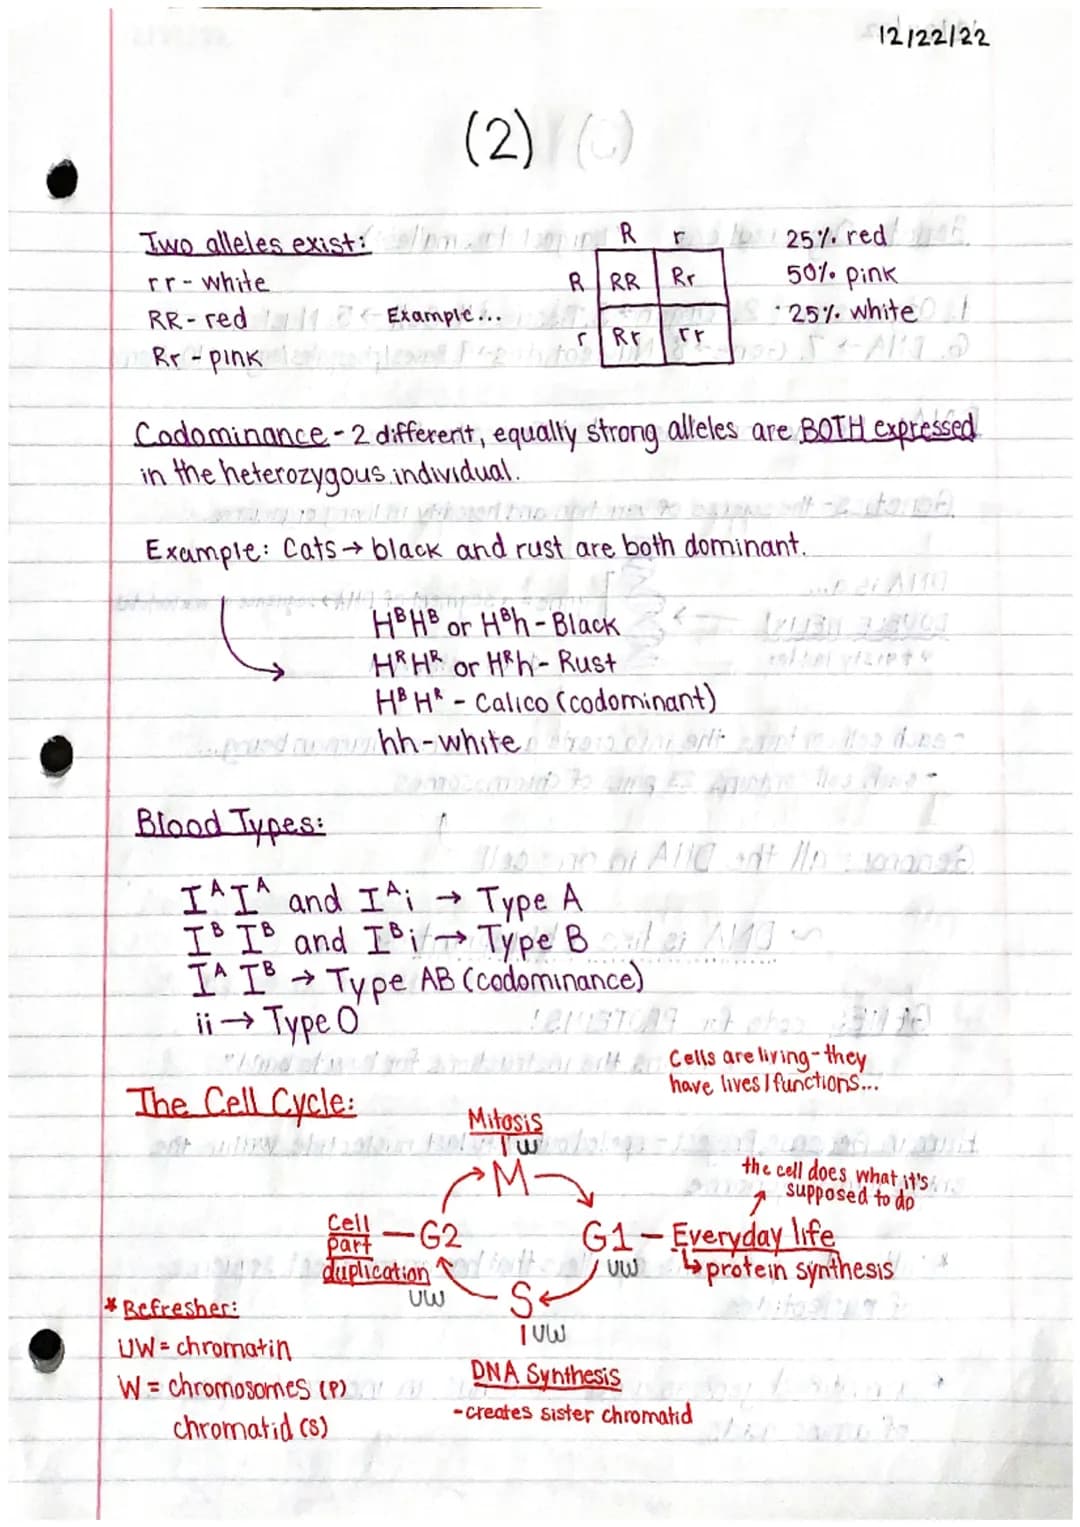 12/22/22
(2)
Two alleles exist:
rr - white
RR - red
Rr - pink
Example...
R r
R RR Rr
r Rr rr
25% red
50% pink
25% white
Codominance - 2 different, equally strong alleles are BOTH expressed
in the heterozygous individual.
Example: Cats → black and rust are both dominant.
HᴮHᴮ or Hᴮh - Black
HᴿHᴿ or Hᴿh - Rust
HᴮHᴿ - Calico (codominant)
hh - white
Blood Types:
IᴬIᴬ and Iᴬi → Type A
IᴮIᴮ and Iᴮi → Type B
IᴬIᴮ → Type AB (codominance)
ii → Type O
Cells are living - they
have lives / functions...
The Cell Cycle:
Mitosis
W
M
the cell does what it's
supposed to do
Cell
part
duplication
— G2
UW
G1 — Everyday life
UW
↳ protein synthesis
S
UW
DNA Synthesis
- creates sister chromatid
* Refresher:
UW = chromatin
W = chromosomes (P)
chromatid (S)